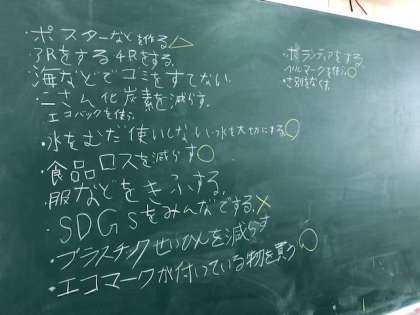 ・ポスターなどを作る。△
3Rをする4Rをする。
海などでゴミをすてない。
二さん化炭素を減らす。
エコバックを使う。
・水をむだ使いしない水を大切にする。○
・食品ロスを減らす○
服などをきふする。
・SDGsをみんなでする。×
・プラスチックせいひんを減らす
・エコマークが付いている物を買う○
・ボランティアをする。
・ベルマークを使う。○
・さ別をなくす。